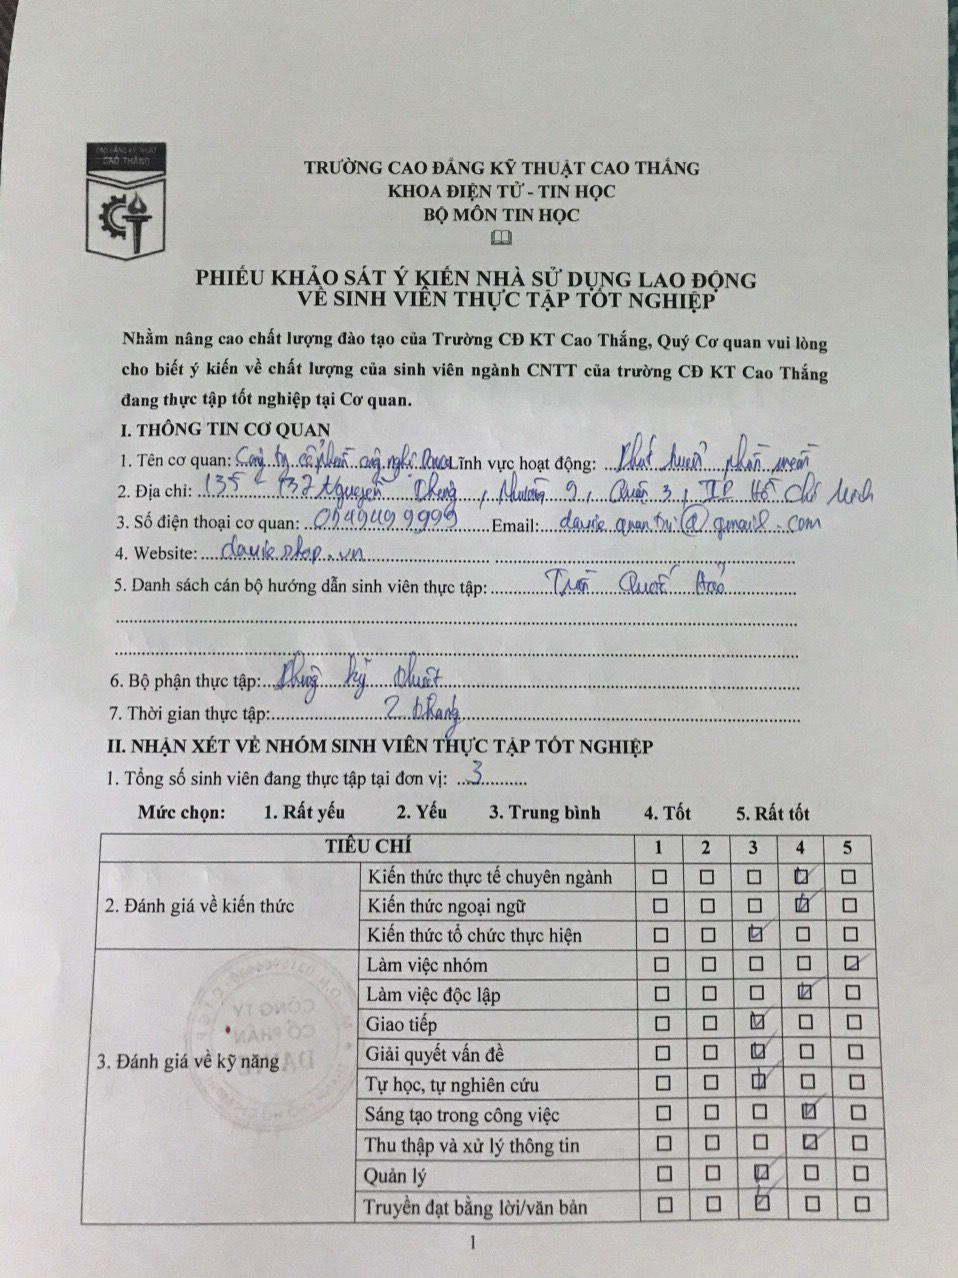 CAO ĐẲNG KỸ THUẬT
CAO THẮNG
TRƯỜNG CAO ĐẲNG KỸ THUẬT CAO THẮNG
KHOA ĐIỆN TỬ - TIN HỌC
BỘ MÔN TIN HỌC
PHIẾU KHẢO SÁT Ý KIẾN NHÀ SỬ DỤNG LAO ĐỘNG
VỀ SINH VIÊN THỰC TẬP TỐT NGHIỆP
Nhằm nâng cao chất lượng đào tạo của Trường CĐ KT Cao Thắng, Quý Cơ quan vui lòng
cho biết ý kiến về chất lượng của sinh viên ngành CNTT của trường CĐ KT Cao Thắng
đang thực tập tốt nghiệp tại Cơ quan.
I. THÔNG TIN CƠ QUAN
1. Tên cơ quan: Công ty cổ phần công nghệ Lĩnh vực hoạt động: Phát triển phần mềm
2. Địa chỉ: 135 - 137 Nguyễn Phường 9, Quận 3, TP Hồ Chí Minh
3. Số điện thoại cơ quan: Email: davie.quantri@gmail.com
4. Website: davieshop.vn
5. Danh sách cán bộ hướng dẫn sinh viên thực tập: Trần Quốc Hảo
6. Bộ phận thực tập: Phòng kỹ thuật
7. Thời gian thực tập: 2 tháng
II. NHẬN XÉT VỀ NHÓM SINH VIÊN THỰC TẬP TỐT NGHIỆP
1. Tổng số sinh viên đang thực tập tại đơn vị: 3
Mức chọn: 1. Rất yếu 2. Yếu 3. Trung bình 4. Tốt 5. Rất tốt
TIÊU CHÍ 1 2 3 4 5
Kiến thức thực tế chuyên ngành
2. Đánh giá về kiến thức Kiến thức ngoại ngữ
Kiến thức tổ chức thực hiện
Làm việc nhóm
Làm việc độc lập
Giao tiếp
Giải quyết vấn đề
3. Đánh giá về kỹ năng
Tự học, tự nghiên cứu
Sáng tạo trong công việc
Thu thập và xử lý thông tin
Quản lý
Truyền đạt bằng lời/văn bản
CÔNG TY
CỔ PHẦN
1